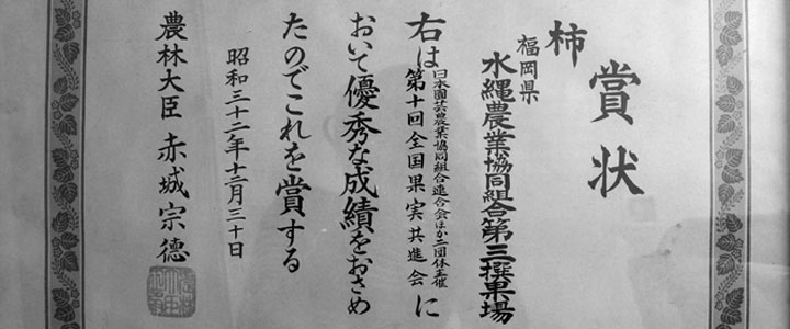 賞状
柿
福岡県
水縄農業協同組合第三撰果場
右は日本園芸農業協同組合連合会ほか二団体主催第十回全国果実共進会に
おいて優秀な成績をおさめ
たのでこれを賞する
昭和三十二年十二月三十日
農林大臣 赤城宗德